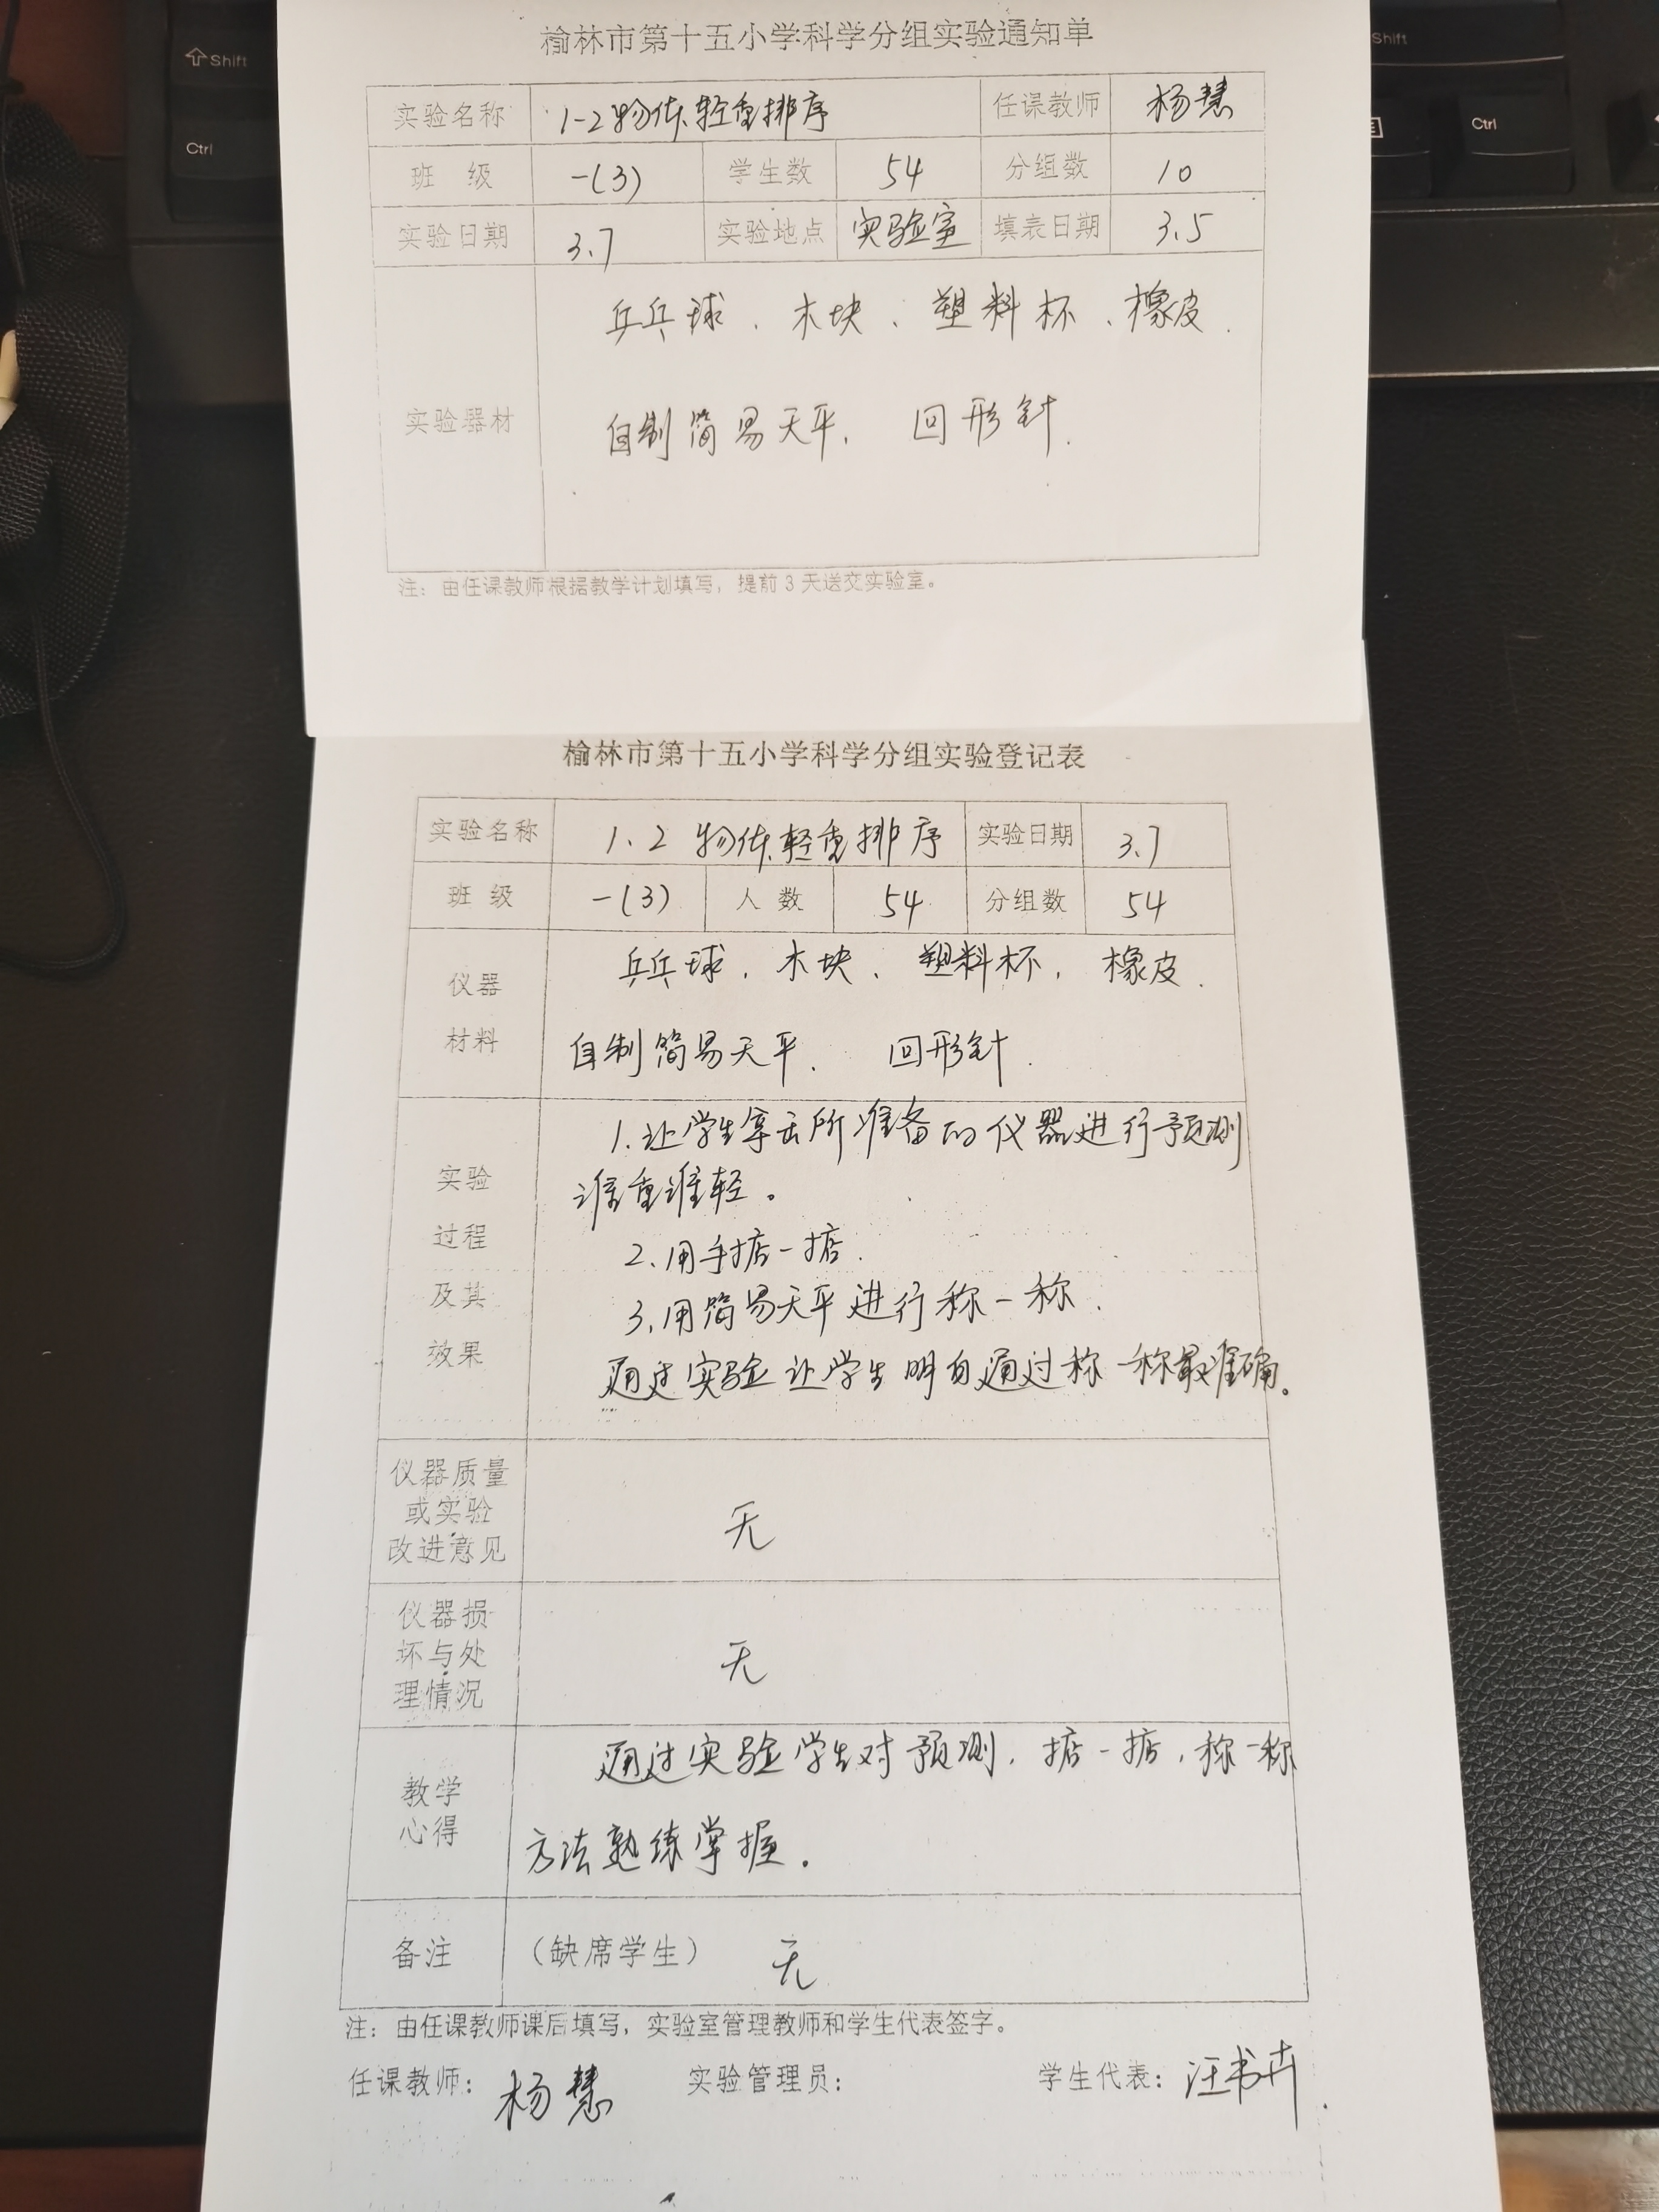 Shift
Ctrl
Shift
Ctrl
榆林市第十五小学科学分组实验通知单
实验名称 1-2物体轻重排序 任课教师 杨慧
班 级 一(3) 学生数 54 分组数 10
实验日期 3.7 实验地点 实验室 填表日期 3.5
实验器材
乒乓球、木块、塑料杯、橡皮.
自制简易天平、 回形针.
注：由任课教师根据教学计划填写，提前3天送交实验室。
榆林市第十五小学科学分组实验登记表
实验名称 1.2 物体轻重排序 实验日期 3.7
班 级 一(3) 人 数 54 分组数 54
仪器
材料
乒乓球、木块、塑料杯、橡皮.
自制简易天平、 回形针.
实验
过程
及其
效果
1.让学生拿出所准备的仪器进行预测
谁重谁轻。
2.用手掂一掂.
3.用简易天平进行称一称.
通过实验让学生明白通过称一称最准确。
仪器质量
或实验
改进意见
无
仪器损
坏与处
理情况
无
教学
心得
通过实验学生对预测、掂一掂、称一称
方法熟练掌握.
备注 （缺席学生） 无
注：由任课教师课后填写，实验室管理教师和学生代表签字。
任课教师：杨慧 实验管理员： 学生代表：汪书卉.